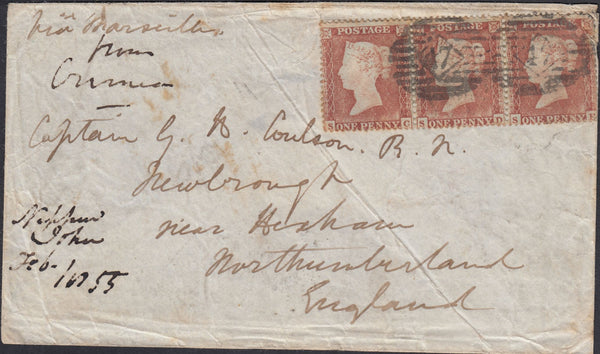 via Marseilles
from
Crimea
POSTAGE POSTAGE
S ONE PENNY C S ONE PENNY D S ONE PENNY E
Captain G. B. Coulson. R. N.
Newbrough
near Hexham
Northumberland
England
John
Feb. 10 55